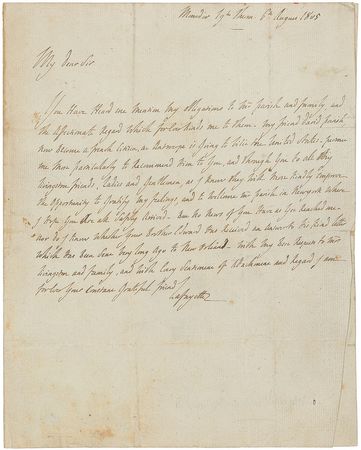 19th Therm. 6th August 1805
My dear Sir
You Have Heard me Mention my obligations to Mr parish and family, and
the Affectionate Regard Which for Ever Binds me to them. My friend David parish
now become a french Citizen, at Antwerp is Going to Visit the United States. permit
me Most particularly to Recommend Him to You, and Through You to all My
livingston friends, Ladies and Gentlemen, as I know they Will Most Kindly Improve
the Opportunity to Gratify my feelings, and to Welcome Mr parish in Newyork Where
I Hope You Are all Safely Arrived. No News of You Have as Yet Reached me
nor do I know Whether Your Brother Edward Has Received an answer to His Kind letter
Which Has Been Sent Very long Ago to New orleans. With my Best Respects to Mrs
livingston and family, and With Every Sentiment of Attachment and Regard I am
for Ever Your Constant Grateful friend
Lafayette